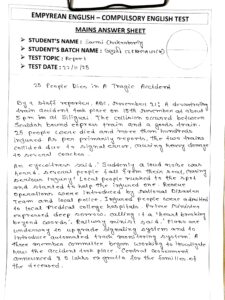 EMPYREAN ENGLISH – COMPULSORY ENGLISH TEST
MAINS ANSWER SHEET
➢ STUDENT'S NAME : Sarmi Chakraborty
➢ STUDENT'S BATCH NAME :
➢ TEST TOPIC : Report
➢ TEST DATE : 22/11/23
25 People Dies in A Tragic Accident
By a staff reporter, ABC, November 21; A devastating
train accident took place on 18th November at about
5 pm in at Siliguri. The collision occured between
Sealdah bound express train and a goods train.
25 people were died and more than hundreds
injured. As per primary reports, the two trains
collided due to signal error, causing heavy damage
to several coaches.
An eyewitness said, 'Suddenly a loud noise was
heard. Several people fell from their seat, causing
serious injury.' Local people rushed to the spot
and started to help the injured one. Rescue
operations were introduced by National Disaster
Team and local police. Injured people were admitted
to local medical college hospitals. Prime Minister
expressed deep sorrow, calling it a 'heart breaking
beyond words'. Railway minister said, 'Plans are
underway to upgrade signaling system and to
introduce automated track monitoring system.' A
three member committee began working to investigate
how the accident took place. Central Government
announced lakhs ex-gratia for the families of
the deceased.